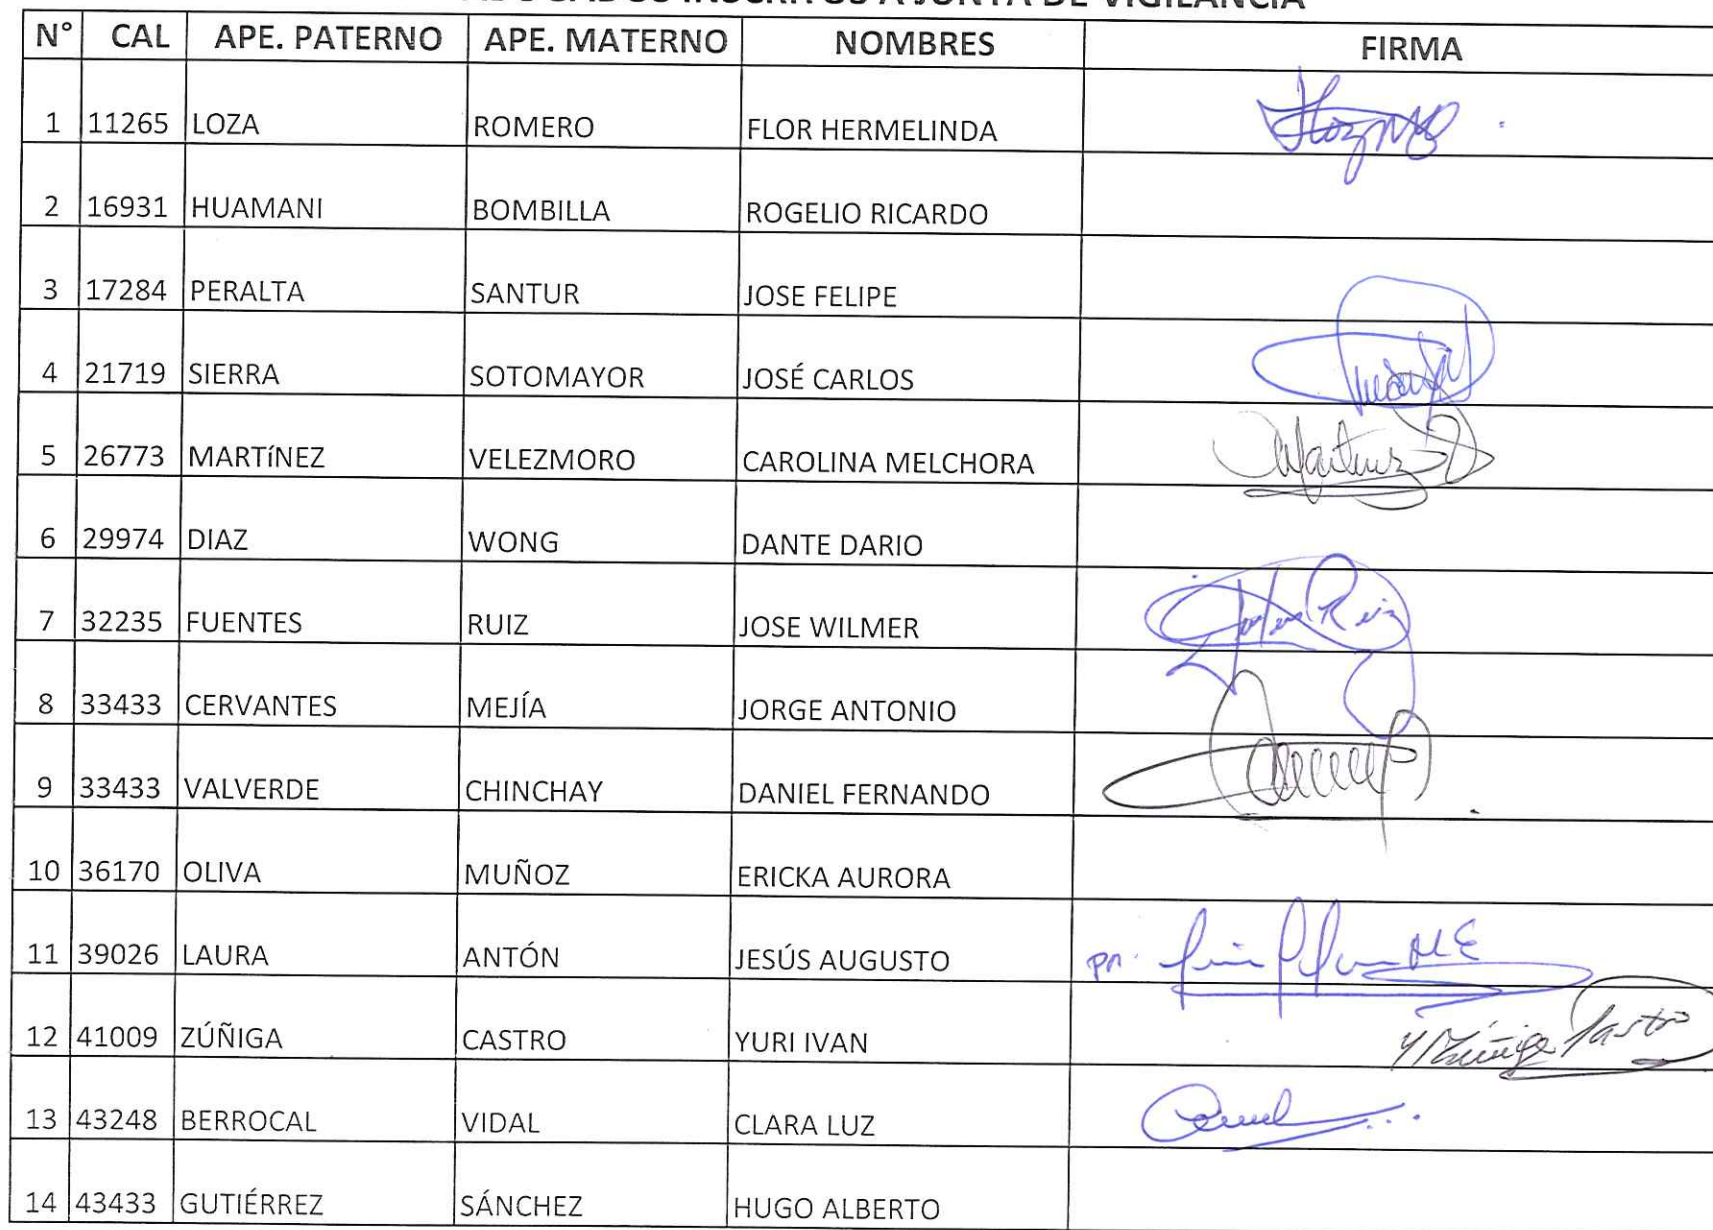 ABOGADOS INSCRITOS A JUNTA DE VIGILANCIA
N° CAL APE. PATERNO APE. MATERNO NOMBRES FIRMA
1 11265 LOZA ROMERO FLOR HERMELINDA
2 16931 HUAMANI BOMBILLA ROGELIO RICARDO
3 17284 PERALTA SANTUR JOSE FELIPE
4 21719 SIERRA SOTOMAYOR JOSÉ CARLOS
5 26773 MARTíNEZ VELEZMORO CAROLINA MELCHORA Martinez
6 29974 DIAZ WONG DANTE DARIO
7 32235 FUENTES RUIZ JOSE WILMER Ruiz
8 33433 CERVANTES MEJÍA JORGE ANTONIO
9 33433 VALVERDE CHINCHAY DANIEL FERNANDO
10 36170 OLIVA MUÑOZ ERICKA AURORA
11 39026 LAURA ANTÓN JESÚS AUGUSTO
12 41009 ZÚÑIGA CASTRO YURI IVAN Y Zúñiga Castro
13 43248 BERROCAL VIDAL CLARA LUZ
14 43433 GUTIÉRREZ SÁNCHEZ HUGO ALBERTO